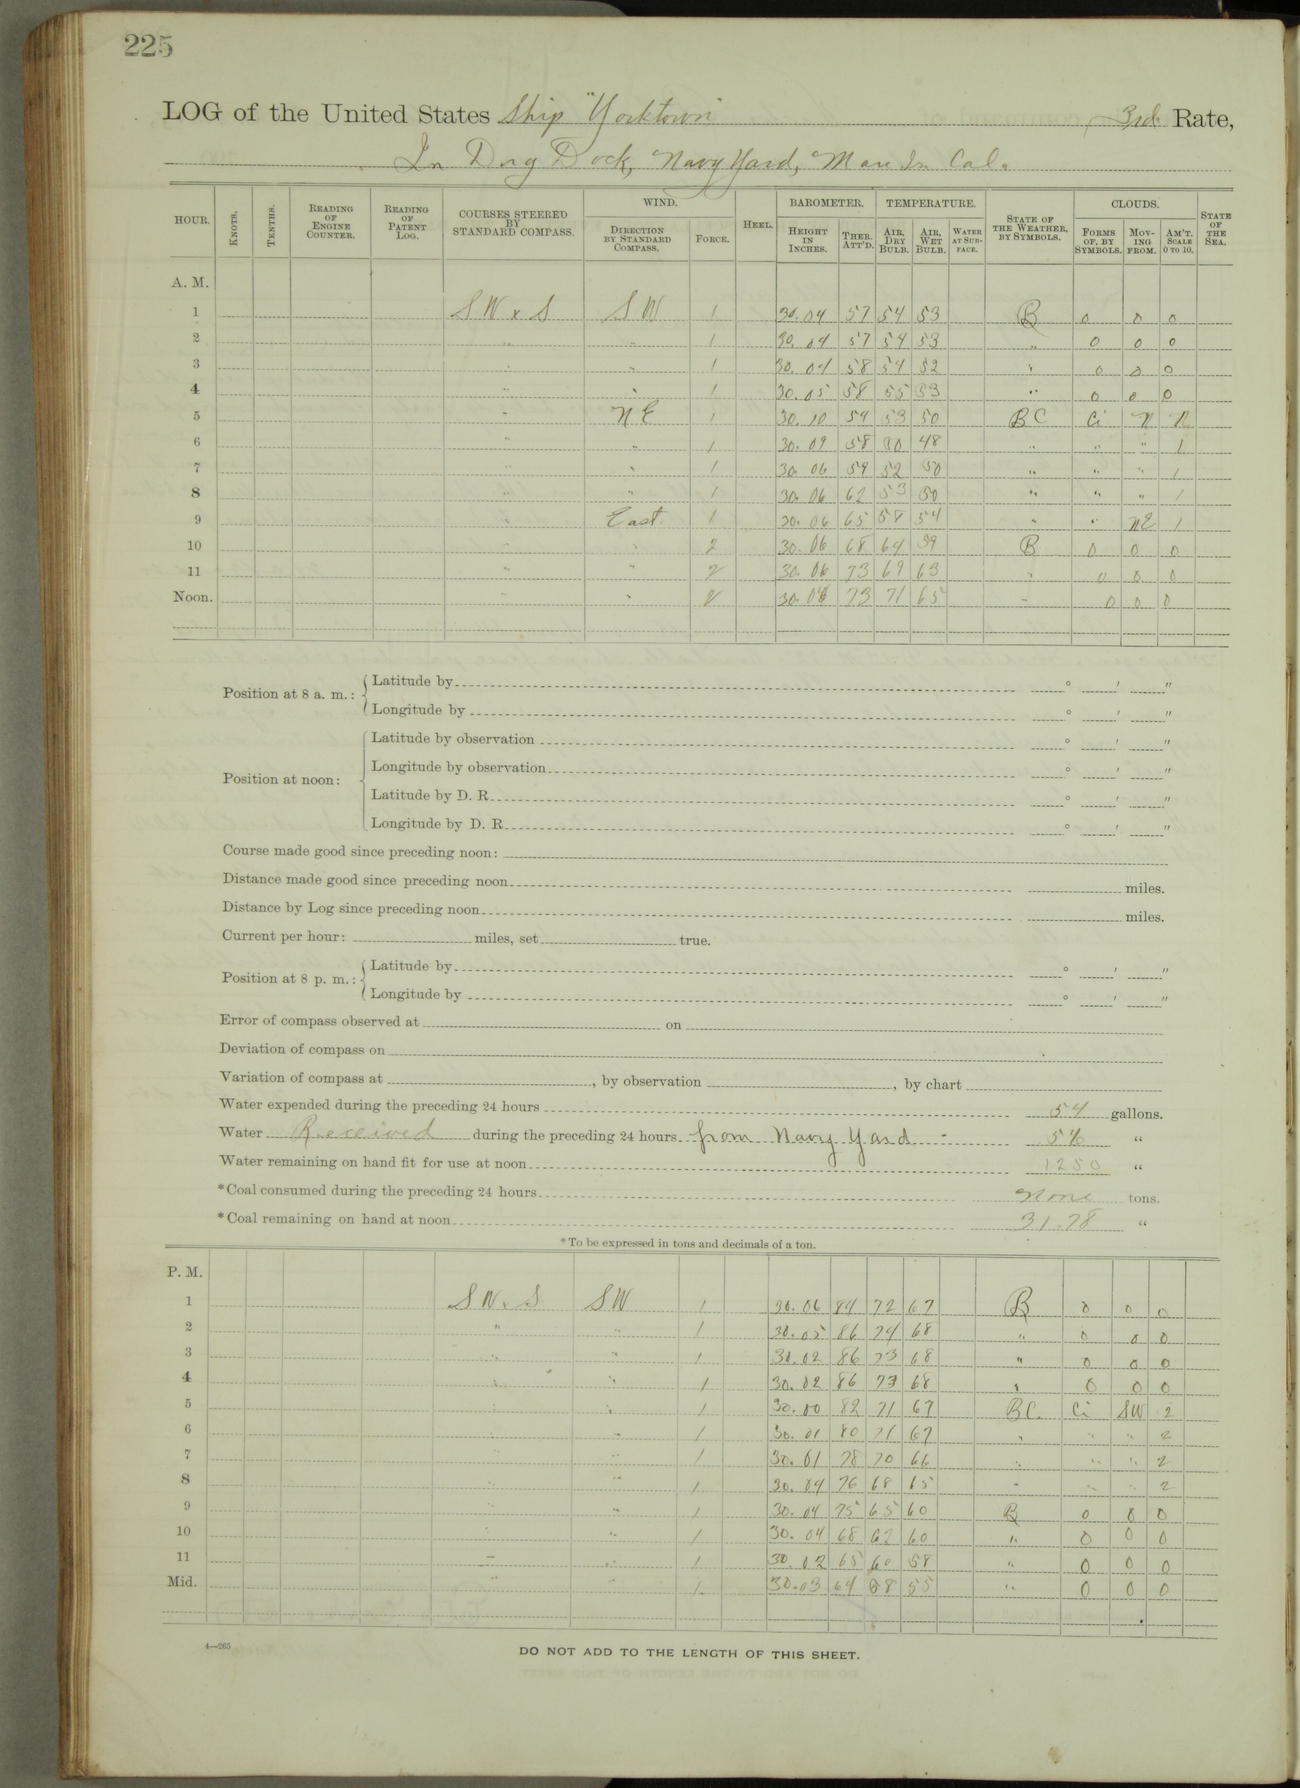 225
LOG of the United States Ship "Yorktown" 3rd Rate,
In Dry Dock, Navy Yard, Mare Is. Cal.
HOUR. KNOTS. TENTHS. READING OF ENGINE COUNTER. READING OF PATENT LOG. COURSES STEERED BY STANDARD COMPASS. WIND. DIRECTION BY STANDARD COMPASS. FORCE. HEEL. BAROMETER. HEIGHT IN INCHES. THER. ATT'D. TEMPERATURE. AIR, DRY BULB. AIR, WET BULB. WATER AT SURFACE. STATE OF THE WEATHER, BY SYMBOLS. CLOUDS. FORMS OF, BY SYMBOLS. MOVING FROM. AM'T. SCALE 0 TO 10. STATE OF THE SEA.
A. M.
1 SW x S SW 1 30.04 57 54 53 B 0 0 0
2 " " 1 30.04 57 54 53 " 0 0 0
3 " " 1 30.04 58 54 52 " 0 0 0
4 " " 1 30.05 58 55 53 " 0 0 0
5 " NE 1 30.10 54 53 50 BC Ci N
6 " " 1 30.09 58 48 " " " 1
7 " " 1 30.06 59 52 50 " " " 1
8 " " 1 30.06 62 53 50 " " " 1
9 " East 1 30.06 65 58 54 " " NE 1
10 " " 2 30.06 68 64 59 B 0 0 0
11 " " 2 30.06 73 69 63 " 0 0 0
Noon. " " 2 30.06 73 71 65 " 0 0 0
Position at 8 a. m.: Latitude by ° ′ ″
Longitude by ° ′ ″
Latitude by observation ° ′ ″
Position at noon: Longitude by observation ° ′ ″
Latitude by D. R. ° ′ ″
Longitude by D. R. ° ′ ″
Course made good since preceding noon:
Distance made good since preceding noon miles.
Distance by Log since preceding noon miles.
Current per hour: miles, set true.
Position at 8 p. m.: Latitude by ° ′ ″
Longitude by ° ′ ″
Error of compass observed at on
Deviation of compass on
Variation of compass at , by observation , by chart
Water expended during the preceding 24 hours 54 gallons.
Water Received during the preceding 24 hours from Navy Yard - "
Water remaining on hand fit for use at noon 1250 "
*Coal consumed during the preceding 24 hours None tons.
*Coal remaining on hand at noon 31.78 "
*To be expressed in tons and decimals of a ton.
P. M.
1 SW x S SW 1 30.06 84 72 67 B 0 0 0
2 " " 1 30.05 86 74 68 " 0 0 0
3 " " 1 30.02 86 73 68 " 0 0 0
4 " " 1 30.02 86 73 68 " 0 0 0
5 " " 1 30.00 82 71 67 BC. Ci SW 2
6 " " 1 30.01 80 71 67 " " " 2
7 " " 1 30.01 78 70 66 " " " 2
8 " " 1 30.04 76 68 65 " " " 2
9 " " 1 30.04 75 65 60 B 0 0 0
10 " " 1 30.04 68 62 60 " 0 0 0
11 " " 1 30.02 65 60 58 " 0 0 0
Mid. " " 1 30.03 64 58 55 " 0 0 0
4—265
DO NOT ADD TO THE LENGTH OF THIS SHEET.